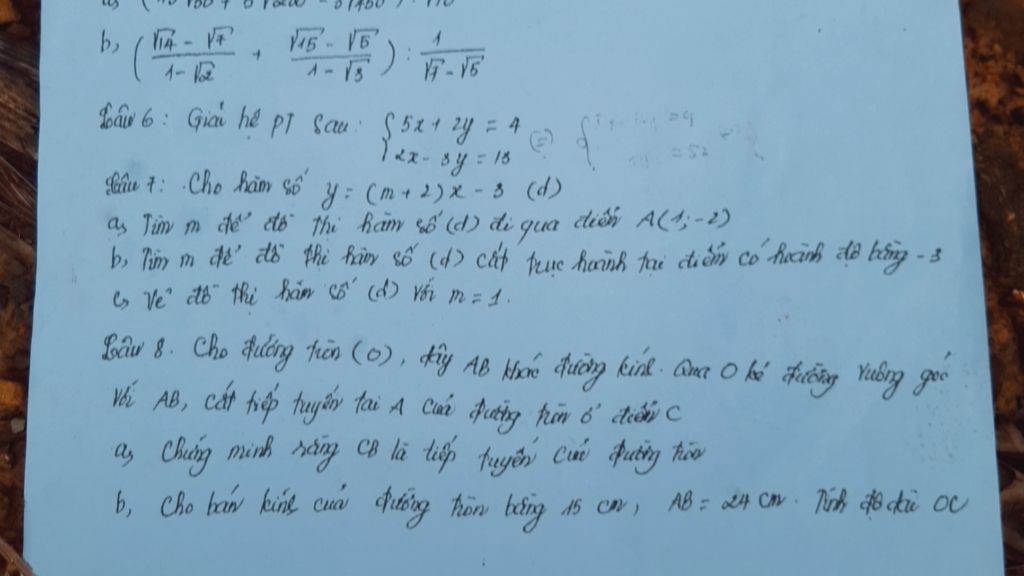 b, ( (√14 - √7)/(1 - √2) + (√15 - √5)/(1 - √3) ) : 1/(√7 - √5)
Câu 6: Giải hệ PT sau: { 5x + 2y = 4
2x - 3y = 13
Câu 7: Cho hàm số y = (m + 2)x - 3 (d)
a, Tìm m để đồ thị hàm số (d) đi qua điểm A(1; -2)
b, Tìm m để đồ thị hàm số (d) cắt trục hoành tại điểm có hoành độ bằng -3
c, Vẽ đồ thị hàm số (d) với m = 1.
Câu 8. Cho đường tròn (O), dây AB khác đường kính. Qua O kẻ đường vuông góc
với AB, cắt tiếp tuyến tại A của đường tròn ở điểm C
a, Chứng minh rằng CB là tiếp tuyến của đường tròn
b, Cho bán kính của đường tròn bằng 15 cm, AB = 24 cm. Tính độ dài OC